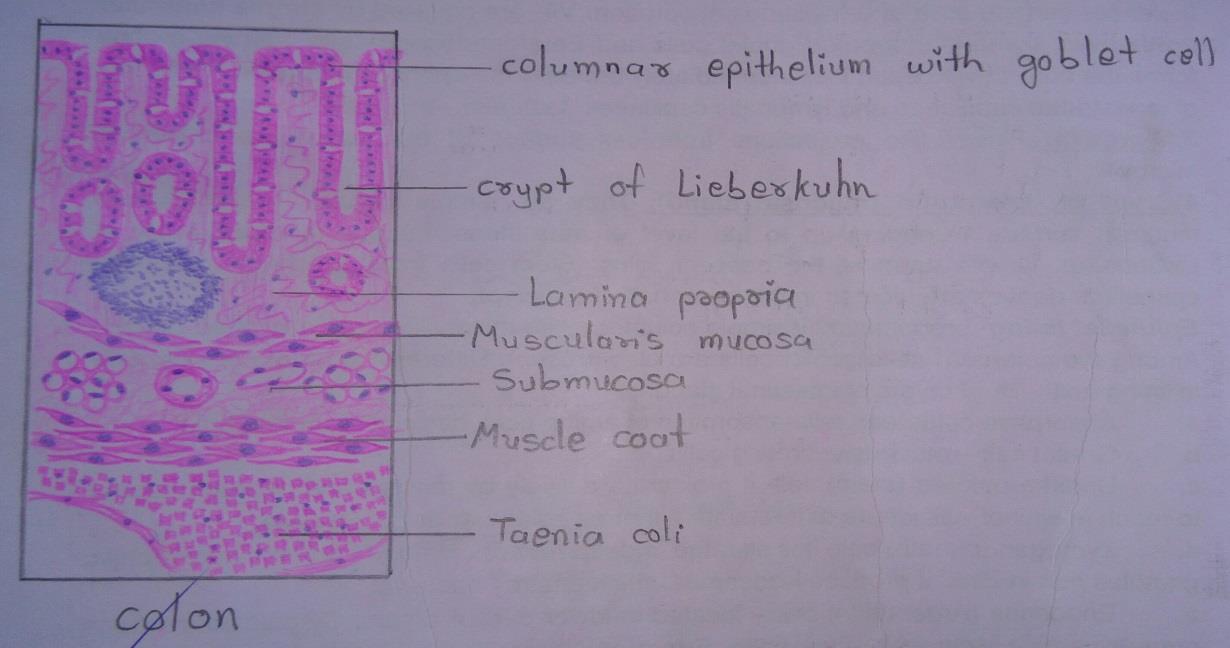 columnar epithelium with goblet cell
crypt of Lieberkuhn
Lamina propria
Muscularis mucosa
Submucosa
Muscle coat
Taenia coli
colon